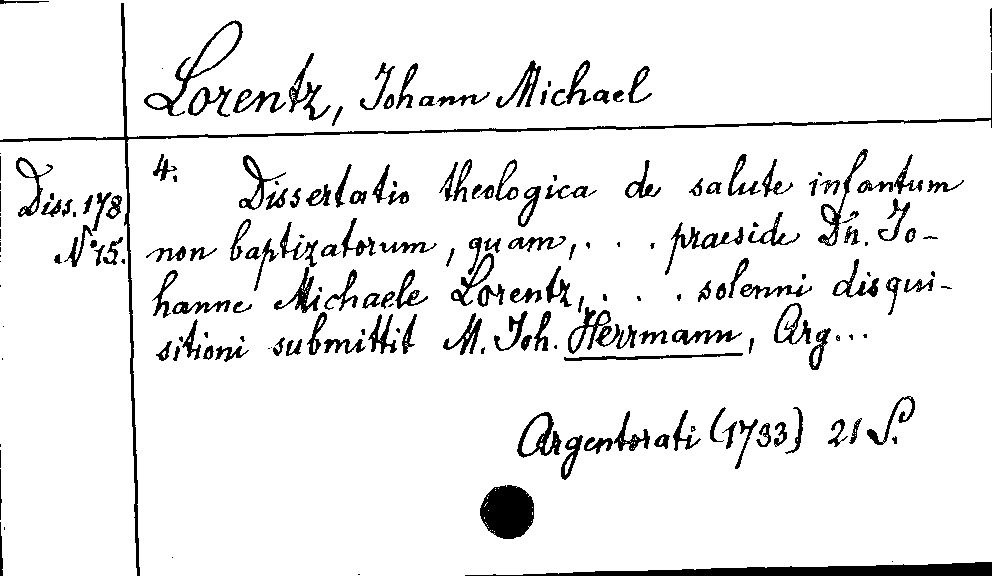 Lorentz, Johann Michael
Diss. 178,
N° 15.
4. Dissertatio theologica de salute infantum
non baptizatorum, quam, . . . praeside Dn. Jo-
hanne Michaele Lorentz, . . . solenni disqui-
sitioni submittit M. Joh. Herrmann, Arg...
Argentorati (1733) 21 S.